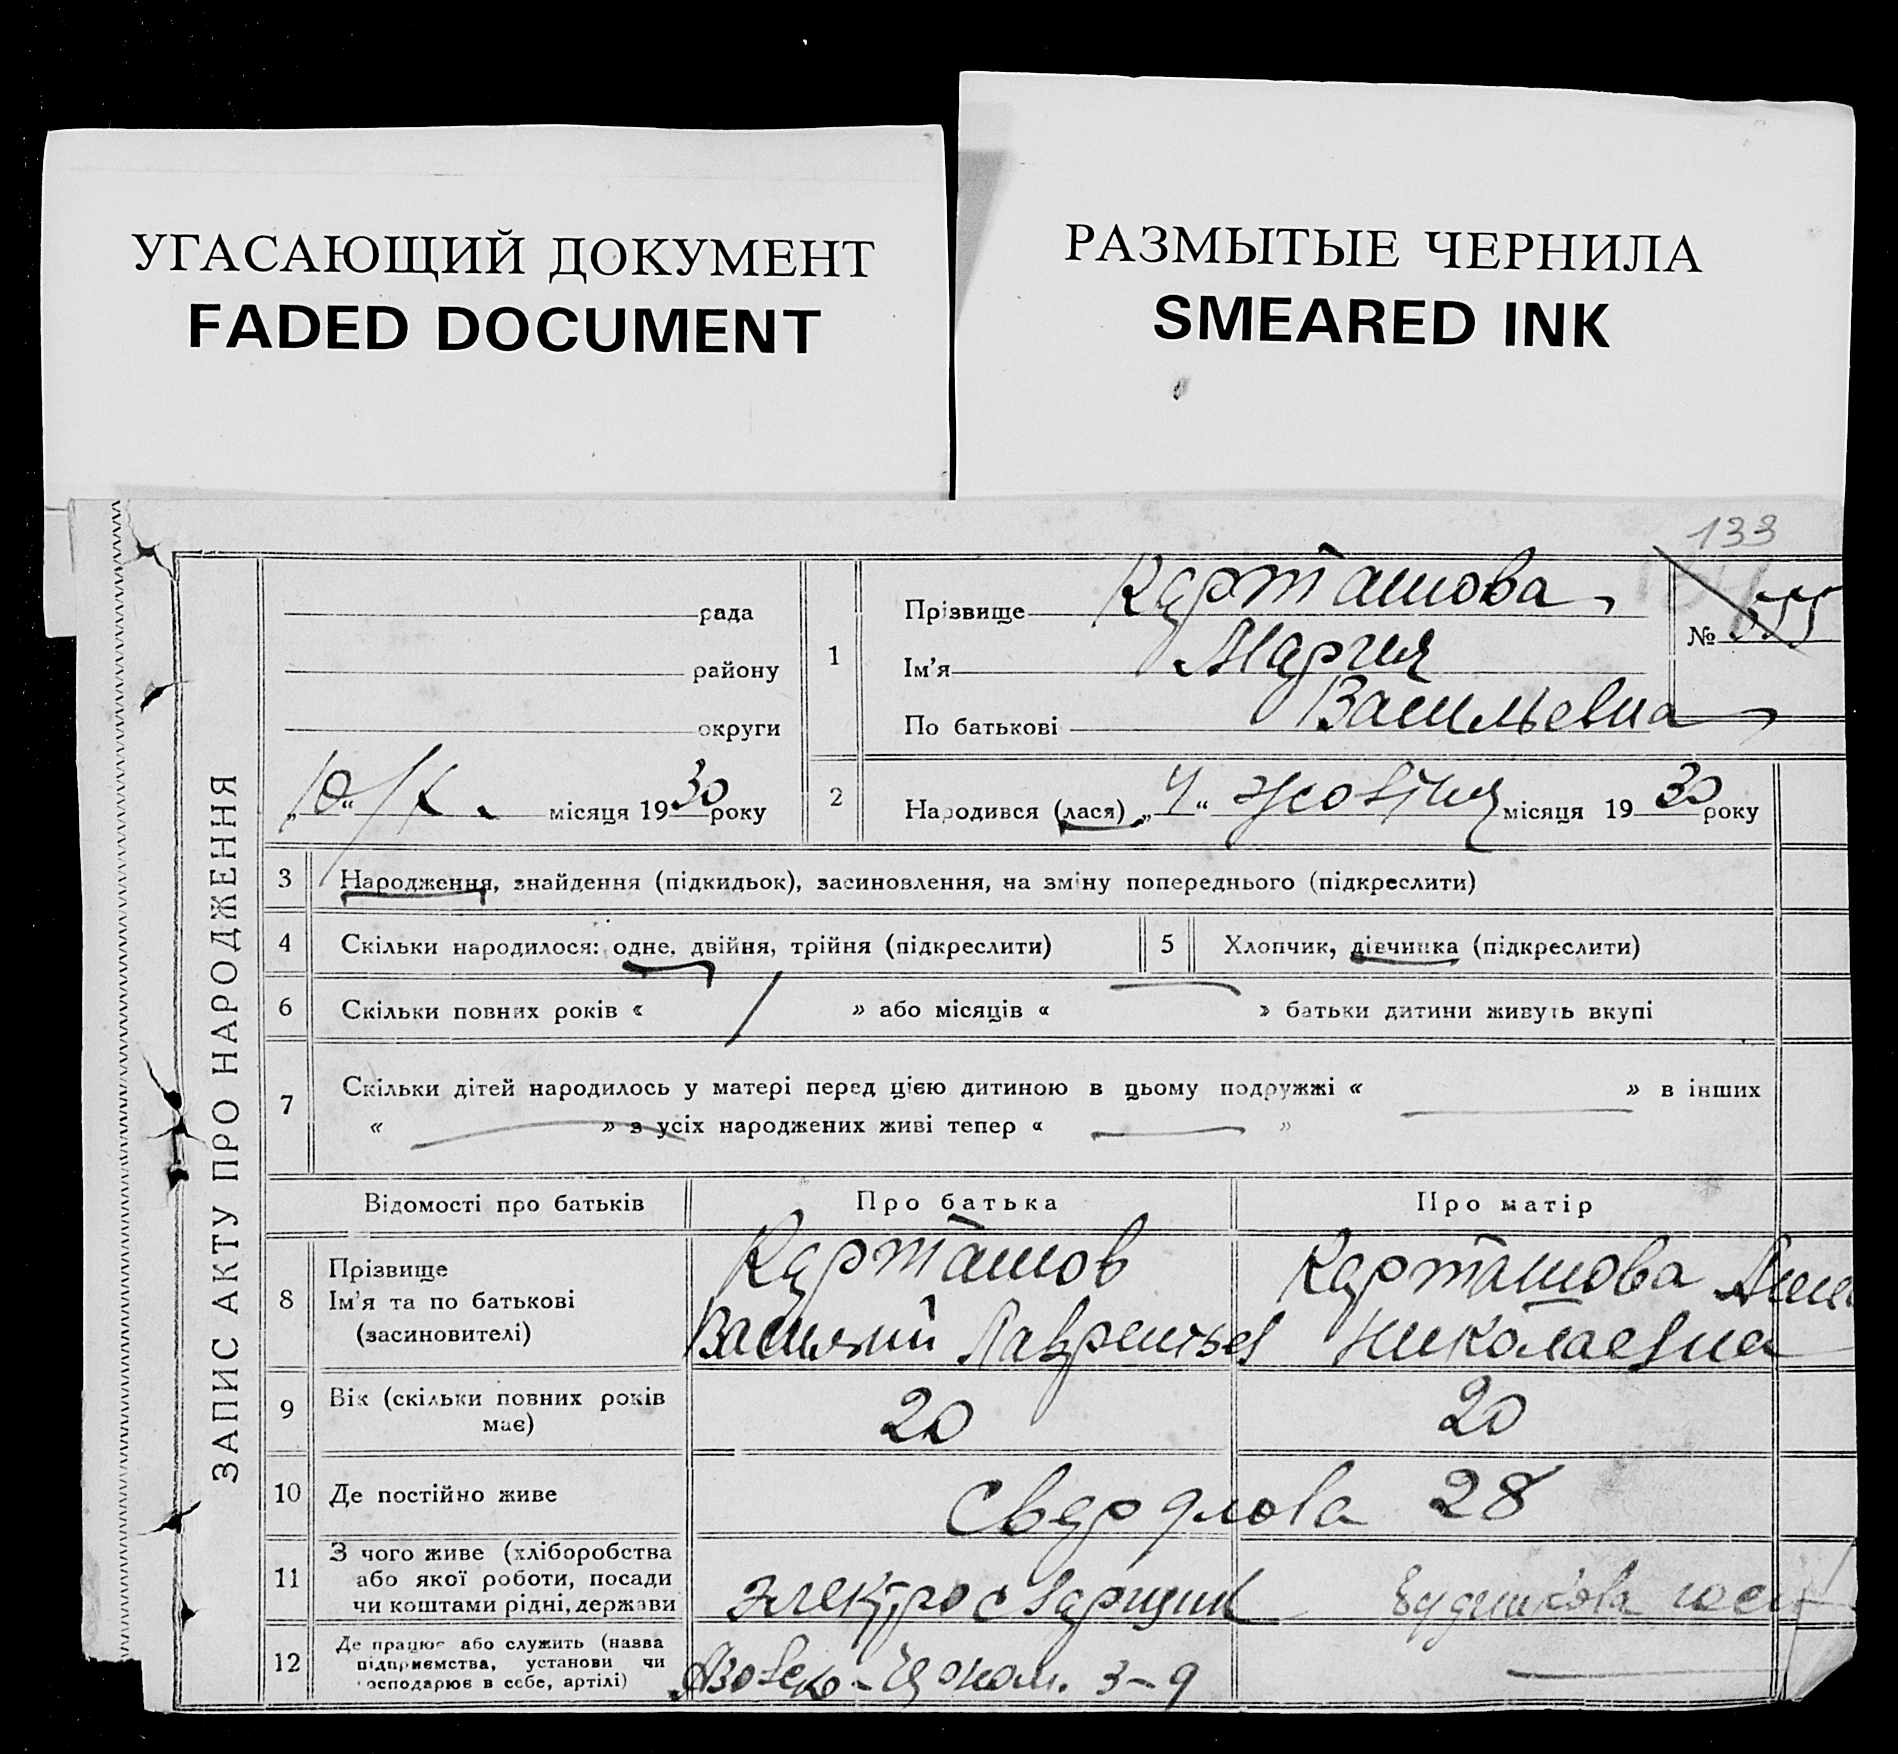 УГАСАЮЩИЙ ДОКУМЕНТ
FADED DOCUMENT
РАЗМЫТЫЕ ЧЕРНИЛА
SMEARED INK
133
ЗАПИС АКТУ ПРО НАРОДЖЕННЯ
рада
району
округи
„10“ /X. місяця 1930 року
1
Прізвище Карташова
Ім'я Мария
По батькові Васильевна
№ 355
2 Народився (лася) „4“ жовтня місяця 1930 року
3 Народження, знайдення (підкидьок), засиновлення, на зміну попереднього (підкреслити)
4 Скільки народилося: одне, двійня, трійня (підкреслити)
5 Хлопчик, дівчинка (підкреслити)
6 Скільки повних років « » або місяців « » батьки дитини живуть вкупі
7 Скільки дітей народилось у матері перед цією дитиною в цьому подружжі « » в інших
« » з усіх народжених живі тепер « »
Відомості про батьків Про батька Про матір
8 Прізвище
Ім'я та по батькові
(засиновителі)
Карташов
Василий Лаврентьев
Карташова Анна
Николаевна
9 Вік (скільки повних років
має)
20 20
10 Де постійно живе Свердлова 28
11 З чого живе (хліборобства
або якої роботи, посади
чи коштами рідні, держави
Электросварщик
12 Де працює або служить (назва
підприємства, установи чи
господарює в себе, артілі)
3-9